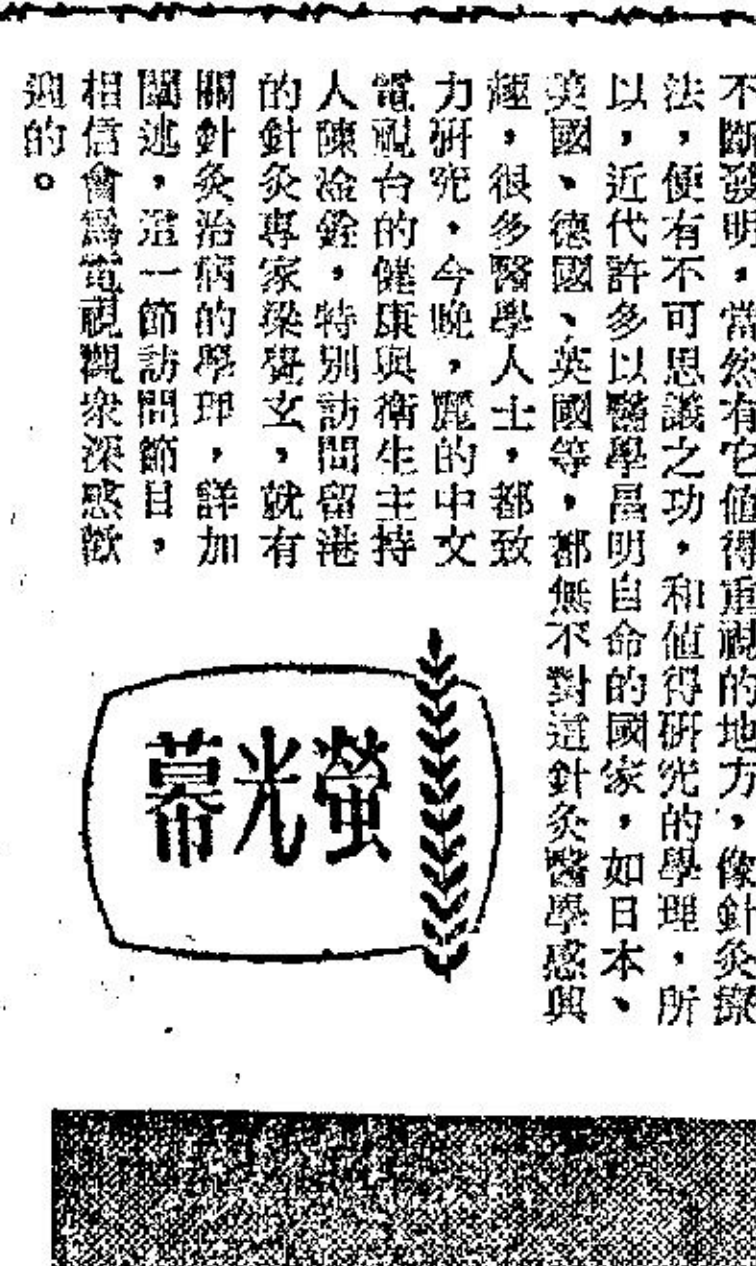 不斷發明，當然有它值得重視的地方，像針灸療
法，便有不可思議之功，和值得研究的學理，所
以，近代許多以醫學昌明自命的國家，如日本、
美國、德國、英國等，都無不對這針灸醫學感興
趣，很多醫學人士，都致
力研究，今晚，麗的中文
電視台的健康與衛生主持
人陳淦銓，特別訪問留港
的針灸專家梁覺玄，就有
關針灸治病的學理，詳加
闡述，這一節訪問節目，
相信會為電視觀眾深感歡
迎的。
螢光幕